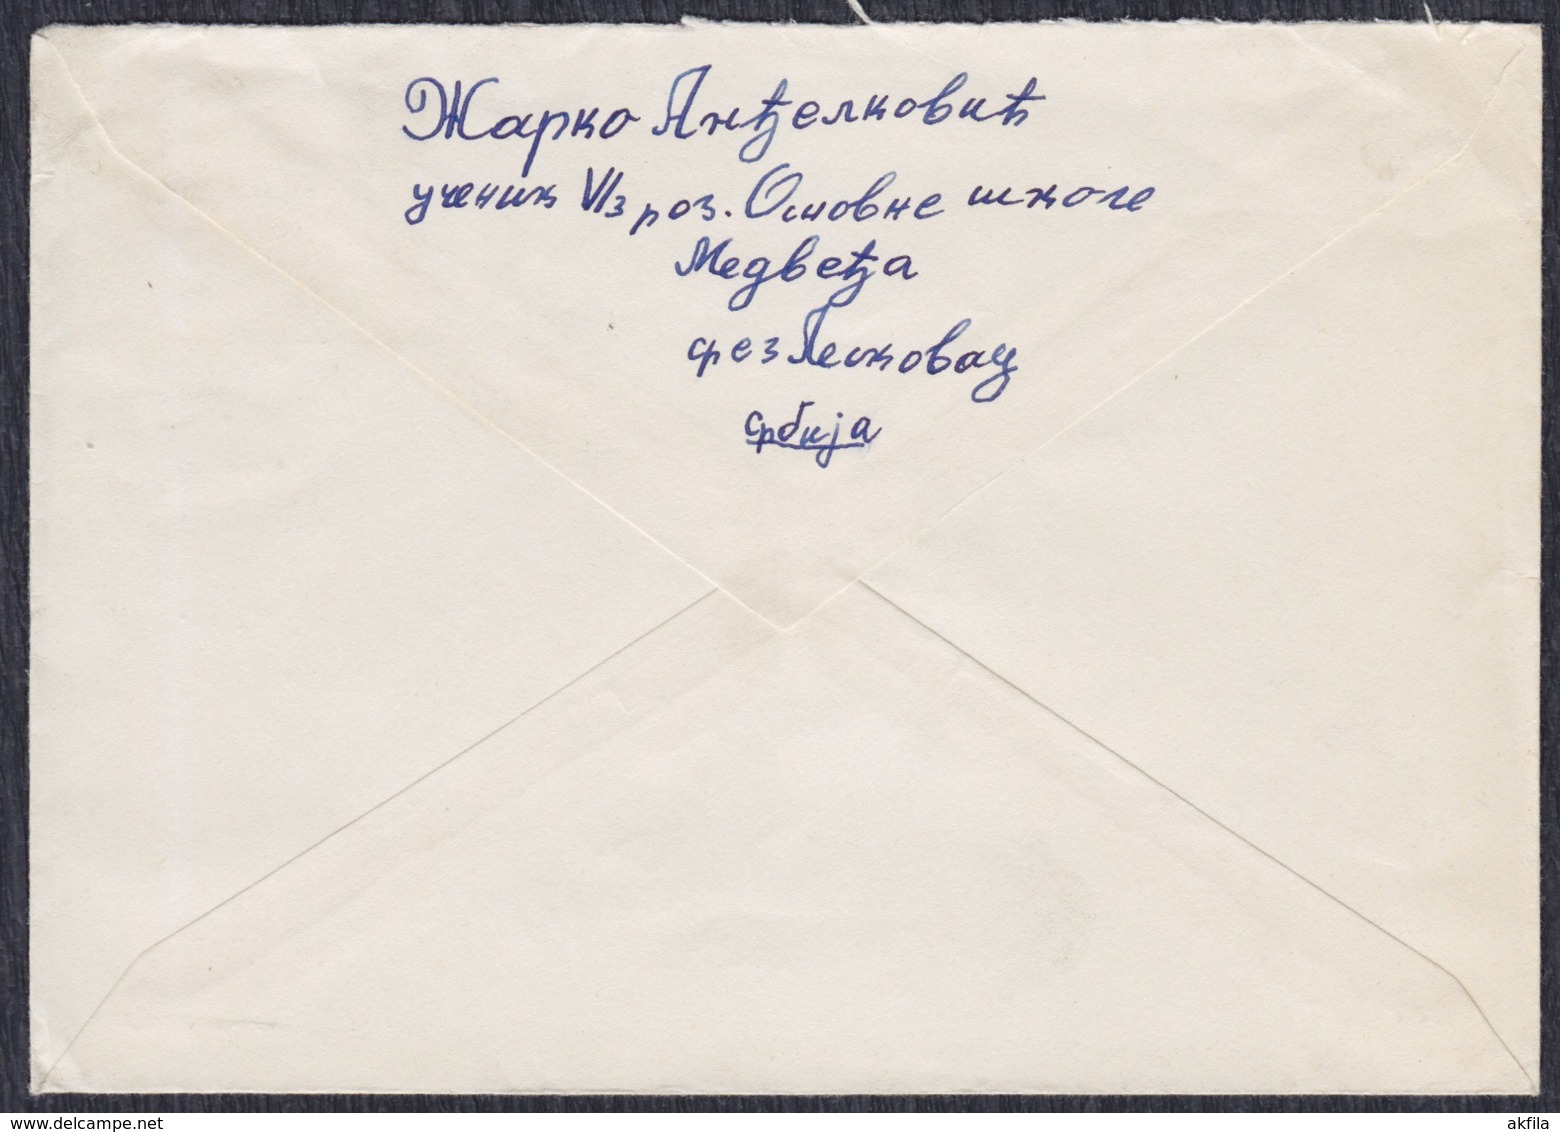 Жарко Анђелковић
ученик VI/3 раз. Основне школе
Медвеђа
срез Лесковац
Србија
www.delcampe.net
akfila